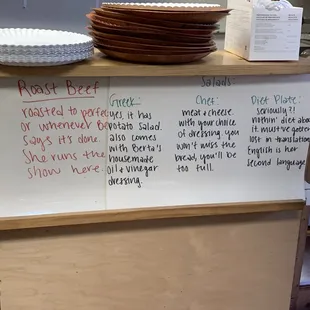 Roast Beef
roasted to perfec
or whenever Be
says it's done.
She runs the
show here
Salads
Greek:
yes, it has
potato salad.
also comes
with Berta's
housemade
oil & vinegar
dressing.
Chef:
meat & cheese
with your choice
of dressing. you
won't miss the
bread, you'll be
too full.
Diet Plate:
seriously?!
nothin' diet abo
it. must've gotten
lost in translation
English is her
second language